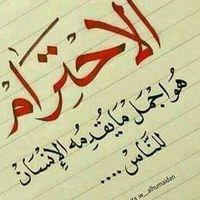 الإحترام
هُوَ اجمل مَا يقدمه الإنسَان
للنَّاسِ ....
ra_w__alhumaidan